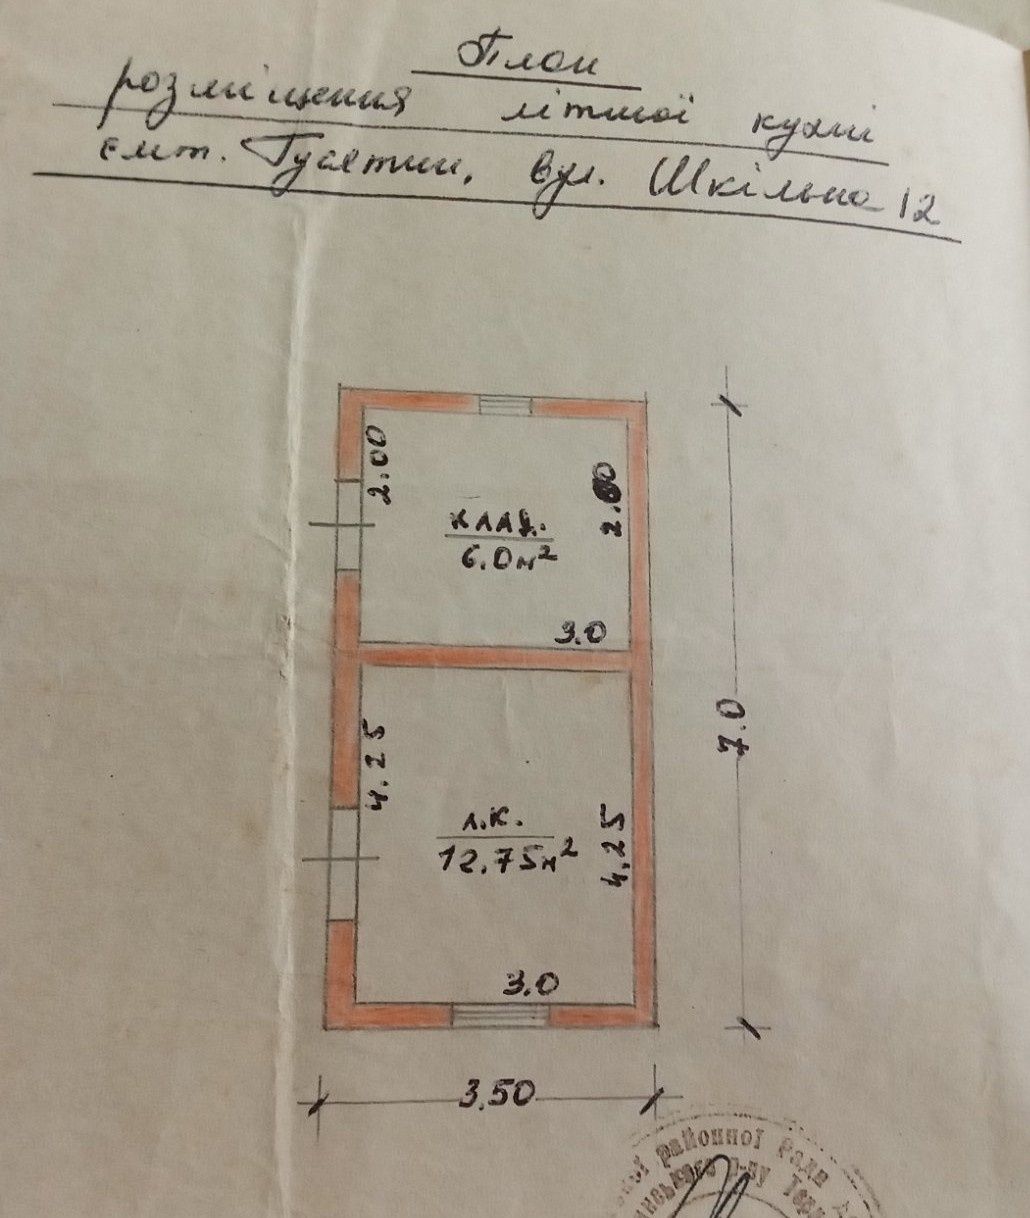 План
розміщення літньої кухні
смт. Гусятин, вул. Шкільна 12
2.00
2.00
клад.
6.0м²
3.0
4.25
7.0
л.к.
12.75м²
4.25
3.0
3.50
районної Ради
р-ну